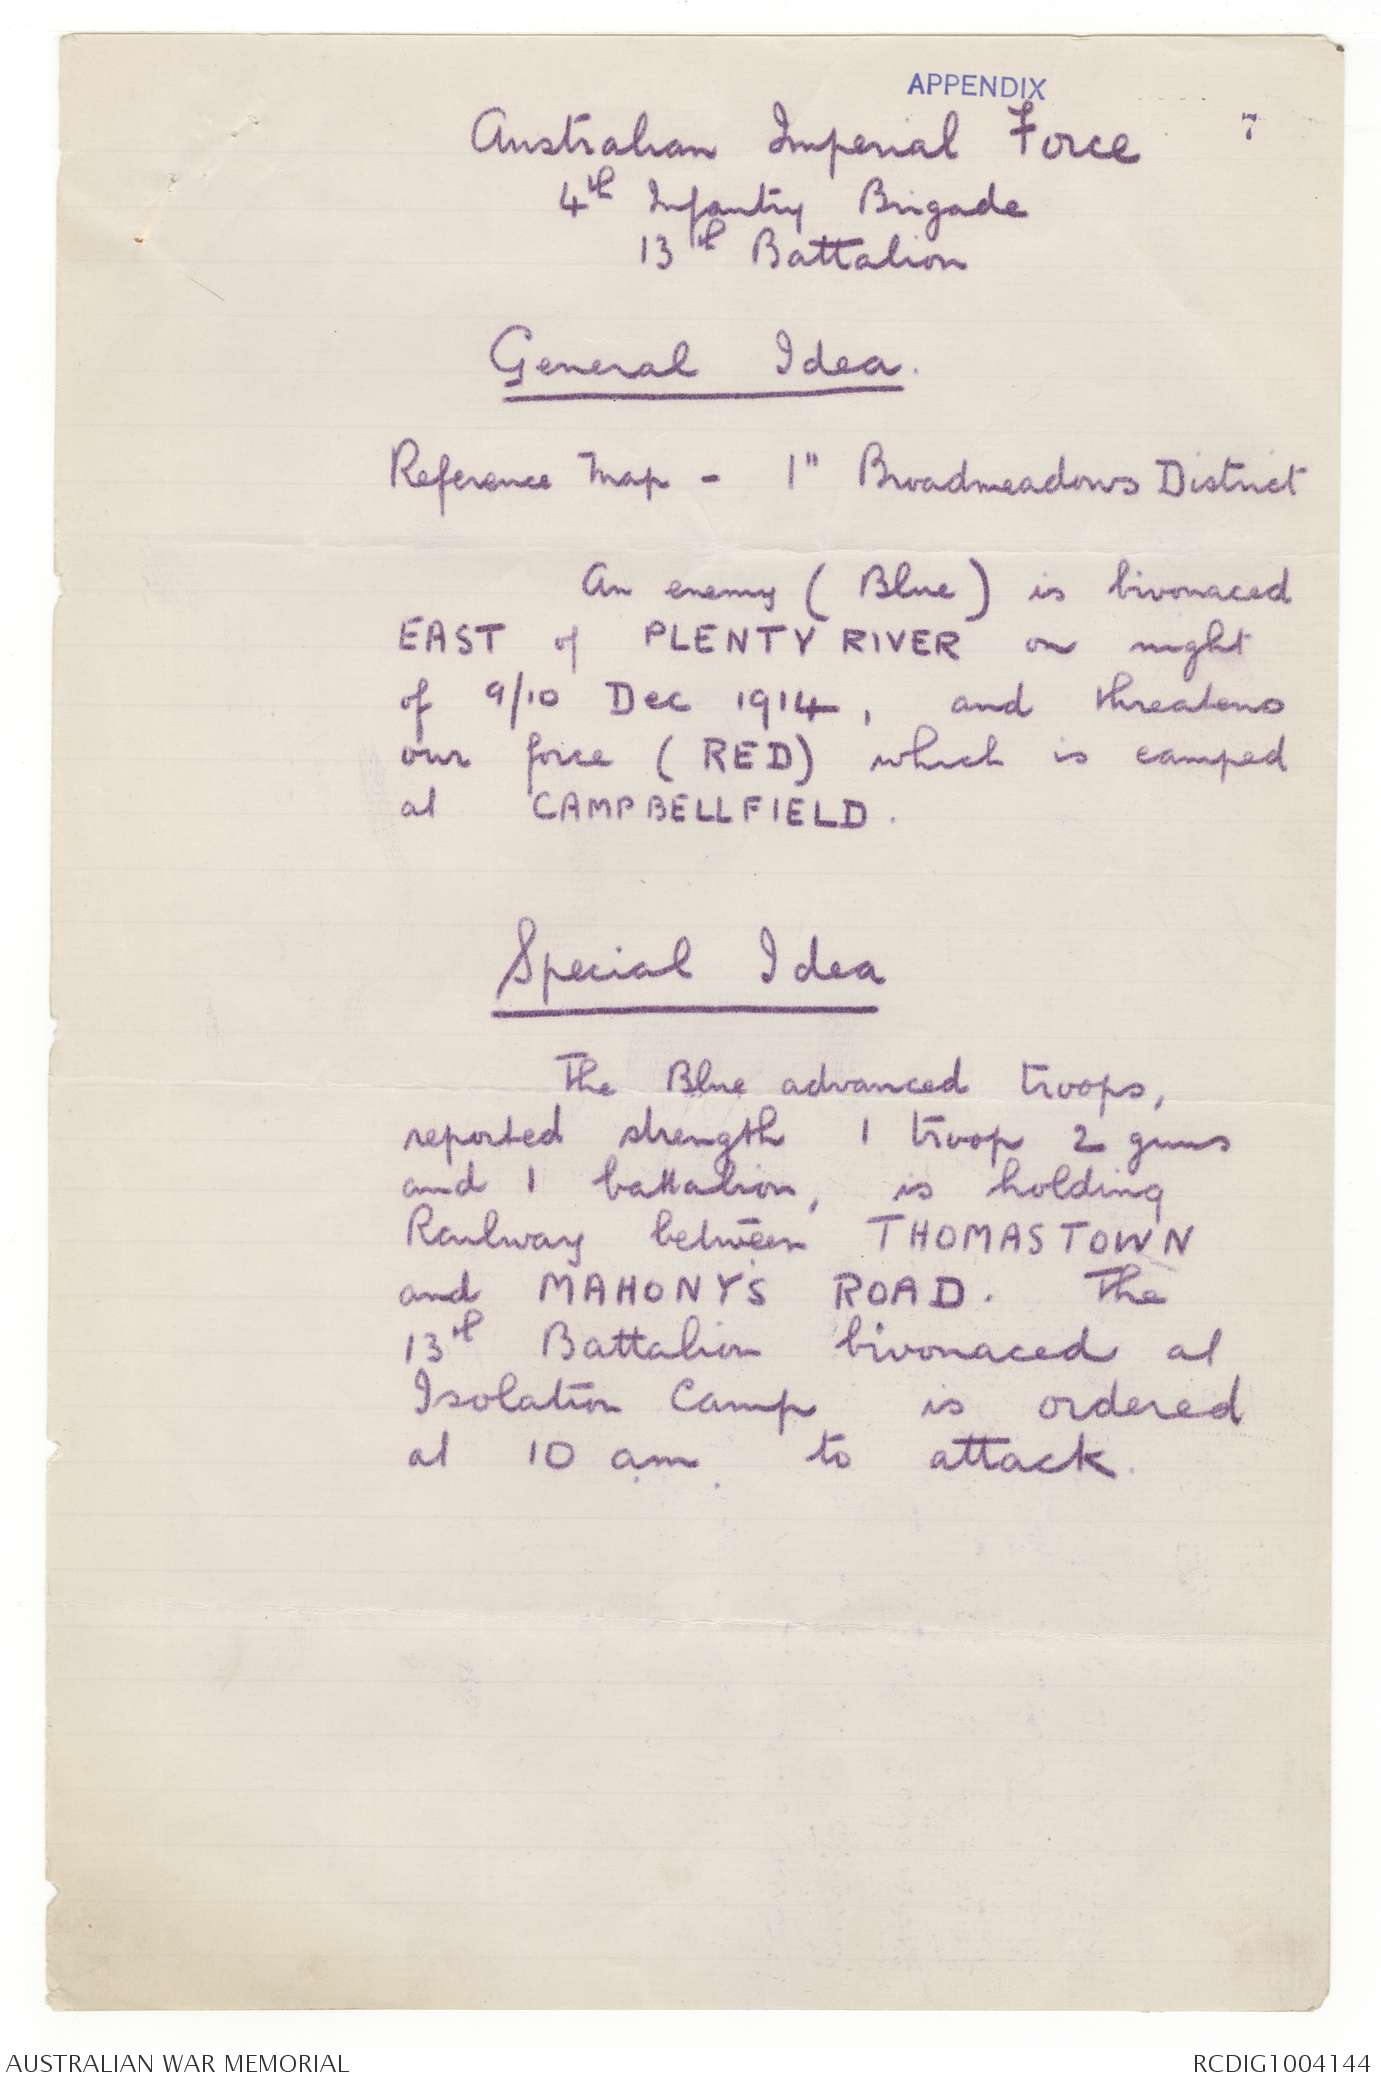 APPENDIX
7
Australian Imperial Force
4th Infantry Brigade
13th Battalion
General Idea.
Reference Map - 1" Broadmeadows District
An enemy (Blue) is bivouaced
EAST of PLENTY RIVER on night
of 9/10 Dec 1914, and threatens
our force (RED) which is camped
at CAMPBELLFIELD.
Special Idea
The Blue advanced troops,
reported strength 1 troop 2 guns
and 1 battalion, is holding
Railway between THOMASTOWN
and MAHONY'S ROAD. The
13th Battalion bivouaced at
Isolation Camp is ordered
at 10 am. to attack.
AUSTRALIAN WAR MEMORIAL
RCDIG1004144